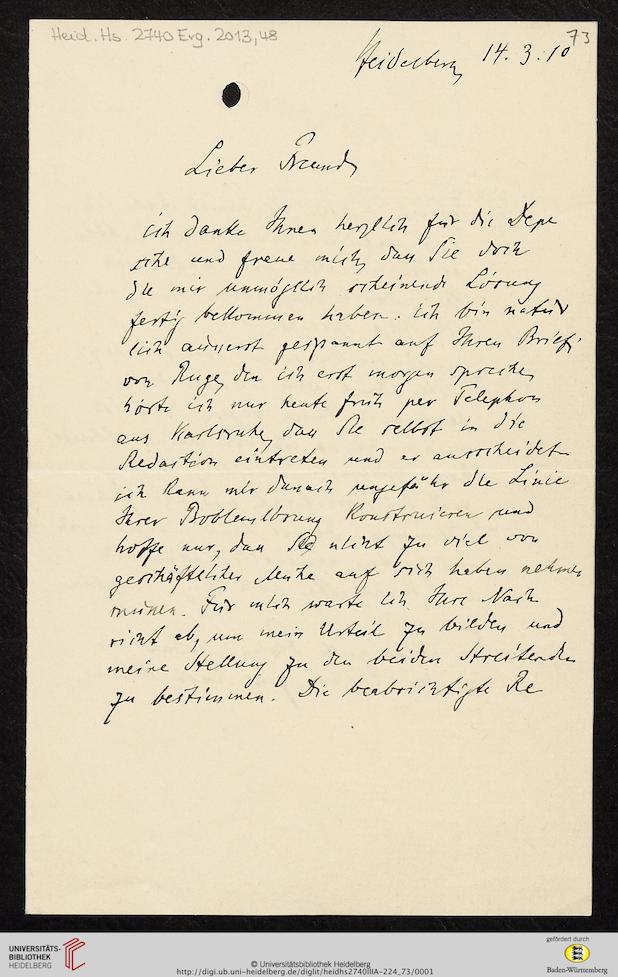 Heid. Hs. 2740 Erg. 2013,48
73
Heidelberg 14. 3. 10
Lieber Freund,
ich danke Ihnen herzlich für die Depe
sche und freue mich, dass Sie doch
die mir unmöglich scheinende Lösung
fertig bekommen haben. Ich bin natür
lich äusserst gespannt auf Ihren Brief;
von Ruge, den ich erst morgen spreche,
hörte ich nur heute früh per Telephon
aus Karlsruhe, dass Sie selbst in die
Redaction eintreten und er ausscheidet
ich kann mir danach ungefähr die Linie
Ihrer Problemlösung konstruieren und
hoffe nur, dass Sie nicht zu viel von
geschäftlicher Mühe auf sich haben nehmen
müssen. Für mich warte ich Ihre Nach
richt ab, um mein Urteil zu bilden und
meine Stellung zu den beiden Streitenden
zu bestimmen. Die beabsichtigte Re
UNIVERSITÄTS-
BIBLIOTHEK
HEIDELBERG
© Universitätsbibliothek Heidelberg
http://digi.ub.uni-heidelberg.de/diglit/heidhs2740IIIA-224_73/0001
gefördert durch
Baden-Württemberg